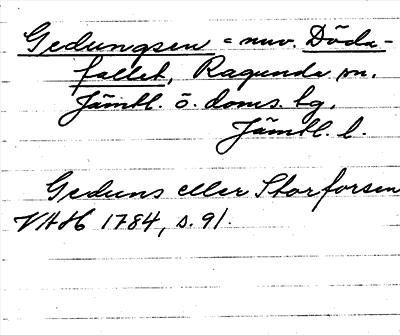 Gedungsen = nuv. Döda-
fallet, Ragunda sn.
Jämtl. ö. doms. tg.
Jämtl. l.
Geduns eller Storforsen
VAH 1784, s. 91.